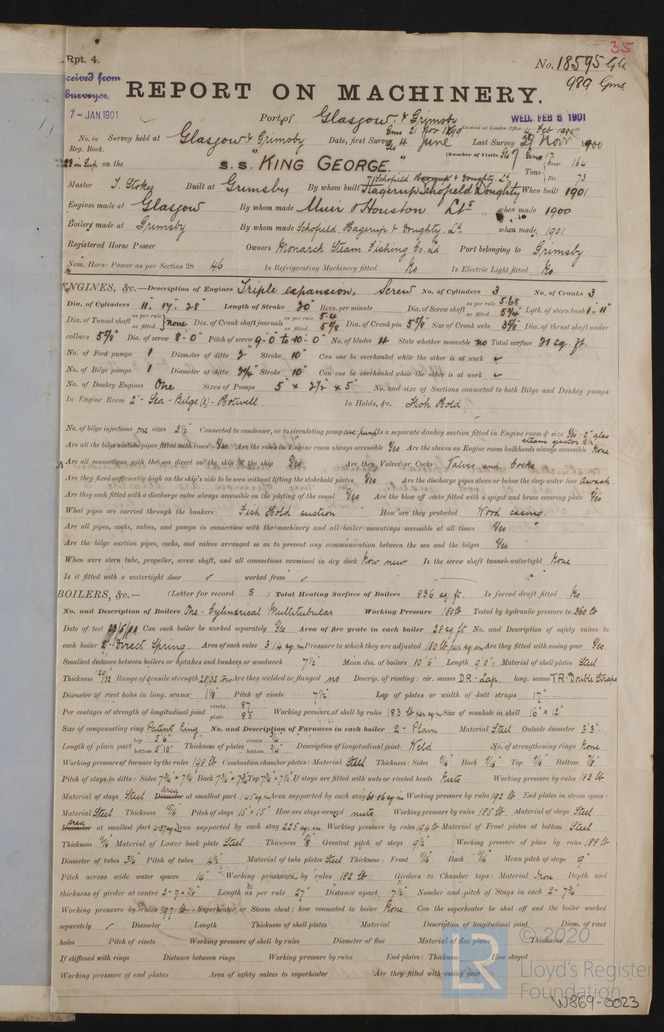 35
Rpt. 4.
No. 18595 Gls
989 Gms
ceived from
Surveyor,
7-JAN 1901
REPORT ON MACHINERY.
Port of Glasgow & Grimsby
WED. FEB 6 1901
No. in Survey held at Glasgow & Grimsby Date, first Survey 4 June Last Survey 29 Nov 1900
Reg. Book.
(Number of Visits
23 in Sup on the S.S. "KING GEORGE."
Tons
164
73
Master T. Stoky Built at Grimsby By whom built Hagerup Schofield Doughty When built 1901
Engines made at Glasgow By whom made Muir & Houston Ltd. when made 1900
Boilers made at Grimsby By whom made Schofield, Hagerup & Doughty. Ld. when made 1901
Registered Horse Power Owners Monarch Steam Fishing Co Ld Port belonging to Grimsby
Nom. Horse Power as per Section 28 46 Is Refrigerating Machinery fitted No Is Electric Light fitted No
ENGINES, &c.—Description of Engines Triple expansion, Screw No. of Cylinders 3 No. of Cranks 3
Dia. of Cylinders 11" 17" 28" Length of Stroke 20" Revs. per minute Dia. of Screw shaft as per rule 5.68 as fitted 5 3/4" Lgth. of stern bush 1'-11"
Dia. of Tunnel shaft as per rule as fitted none Dia. of Crank shaft journals as per rule 5.4 as fitted 5 5/8 Dia. of Crank pin 5 5/8" Size of Crank webs 3 5/8" Dia. of thrust shaft under
collars 5 5/8" Dia. of screw 8-0" Pitch of screw 9-0 to 10-0" No. of blades 4 State whether moveable no Total surface 21 sq. ft
No. of Feed pumps 1 Diameter of ditto 2" Stroke 10" Can one be overhauled while the other is at work ✓
No. of Bilge pumps 1 Diameter of ditto 2 1/4" Stroke 10" Can one be overhauled while the other is at work ✓
No. of Donkey Engines One Sizes of Pumps 5" x 3 1/2" x 5" No. and size of Suctions connected to both Bilge and Donkey pumps
In Engine Room 2"- Sea - Bilge (2) - Hotwell In Holds, &c. Fish Hold
No. of bilge injections one sizes 2 1/2" Connected to condenser, or to circulating pump pump Is a separate donkey suction fitted in Engine room & size Yes - 2" also
steam ejector
Are all the bilge suction pipes fitted with roses Yes Are the roses in Engine room always accessible Yes Are the sluices on Engine room bulkheads always accessible None
Are all connections with the sea direct on the skin of the ship Yes Are they Valves or Cocks Valves and Cocks
Are they fixed sufficiently high on the ship's side to be seen without lifting the stokehold plates Yes Are the discharge pipes above or below the deep water line Awash
Are they each fitted with a discharge valve always accessible on the plating of the vessel Yes Are the blow off cocks fitted with a spigot and brass covering plate Yes
What pipes are carried through the bunkers Fish Hold suction How are they protected Wood casing
Are all pipes, cocks, valves, and pumps in connection with the machinery and all boiler mountings accessible at all times Yes
Are the bilge suction pipes, cocks, and valves arranged so as to prevent any communication between the sea and the bilges Yes
When were stern tube, propeller, screw shaft, and all connections examined in dry dock Now new Is the screw shaft tunnel watertight None
Is it fitted with a watertight door ✓ worked from ✓
BOILERS, &c.— (Letter for record S) Total Heating Surface of Boilers 836 sq. ft. Is forced draft fitted No
No. and Description of Boilers One - Cylindrical Multitubular Working Pressure 180 lb Tested by hydraulic pressure to 360 lb
Date of test Can each boiler be worked separately Yes Area of fire grate in each boiler 28 sq ft No. and Description of safety valves to
each boiler 2 - Direct Spring Area of each valve 3.14 sq in Pressure to which they are adjusted 180 lb per sq in Are they fitted with easing gear Yes
Smallest distance between boilers or uptakes and bunkers or woodwork 7 1/2" Mean dia. of boilers 10'6" Length 9'0" Material of shell plates Steel
Thickness Range of tensile strength 28/32 Tons Are they welded or flanged no Descrip. of riveting: cir. seams DR-Lap long. seams TR-Double Straps
Diameter of rivet holes in long. seams Pitch of rivets 7 1/2" Lap of plates or width of butt straps 17"
Per centages of strength of longitudinal joint rivets 87 plate 85 Working pressure of shell by rules 183 lb per sq in Size of manhole in shell 16" x 12"
Size of compensating ring Patent ring No. and Description of Furnaces in each boiler 2 - Plain Material Steel Outside diameter 3'3"
Length of plain part top 5'6" bottom 5'10" Thickness of plates crown bottom 3/4" Description of longitudinal joint Weld No. of strengthening rings None
Working pressure of furnace by the rules 198 lb Combustion chamber plates: Material Steel Thickness: Sides Back Top Bottom
Pitch of stays to ditto: Sides Back Top If stays are fitted with nuts or riveted heads Nuts Working pressure by rules 182 lb
Material of stays Steel area at smallest part Area supported by each stay Working pressure by rules 192 lb End plates in steam space:
Material Steel Thickness Pitch of stays 15" x 15" How are stays secured nuts Working pressure by rules 185 lb Material of stays Steel
area at smallest part Area supported by each stay 225 sq. in Working pressure by rules 194 lb Material of Front plates at bottom Steel
Thickness Material of Lower back plate Steel Thickness Greatest pitch of stays 9 1/2" Working pressure of plate by rules 188 lb
Diameter of tubes 3 1/4" Pitch of tubes 4 1/2" Material of tube plates Steel Thickness: Front Back Mean pitch of stays 9"
Pitch across wide water spaces 14" Working pressures by rules 182 lb Girders to Chamber tops: Material Iron Depth and
thickness of girder at centre Length as per rule 27" Distance apart 7 3/4" Number and pitch of Stays in each 2 - 7 3/4"
Working pressure by rules 197 lb Superheater or Steam chest; how connected to boiler None Can the superheater be shut off and the boiler worked
separately ✓ Diameter Length Thickness of shell plates Material Description of longitudinal joint Diam. of rivet
holes Pitch of rivets Working pressure of shell by rules Diameter of flue Material of flue plates Thickness
If stiffened with rings Distance between rings Working pressure by rules End plates: Thickness How stayed
Working pressure of end plates Area of safety valves to superheater Are they fitted with easing gear
© 2020
Lloyd's Register
Foundation
W869-0023